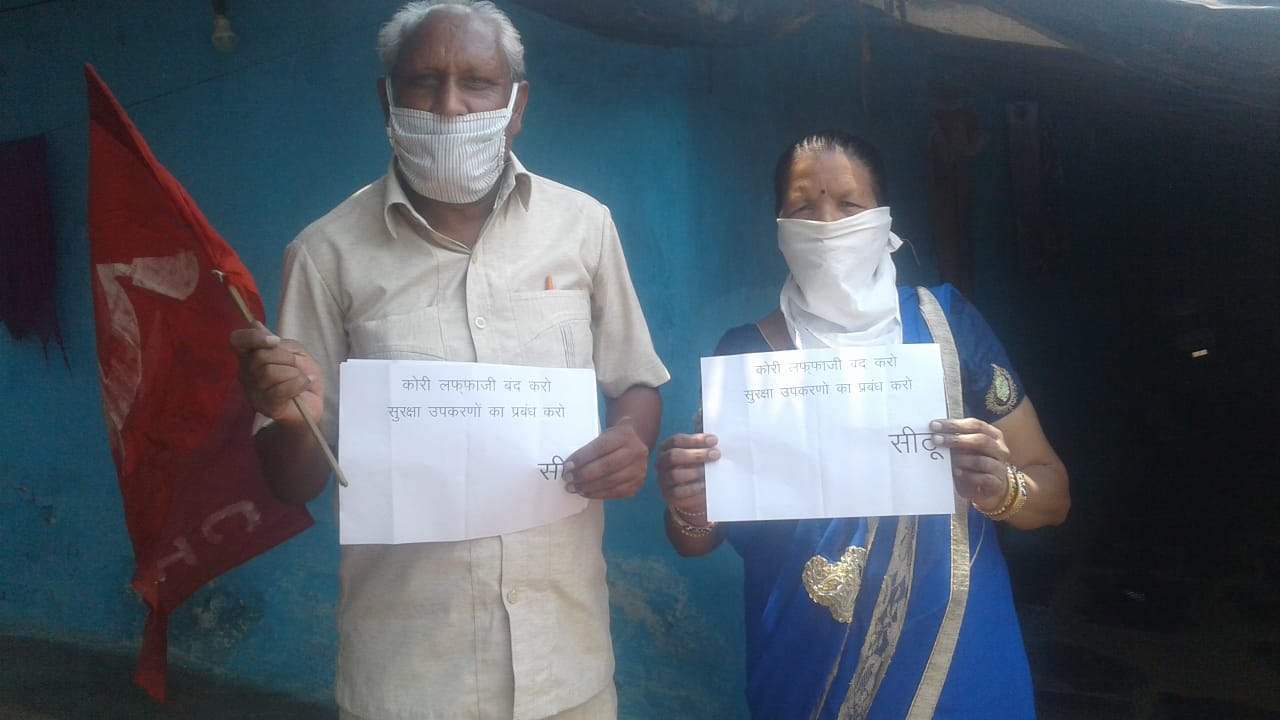 कोरी लफ्फाजी बद करो
सुरक्षा उपकरणों का प्रबंध करो
सी
कोरी लफ्फाजी बद करो
सुरक्षा उपकरणों का प्रबंध करो
सीटू
C I